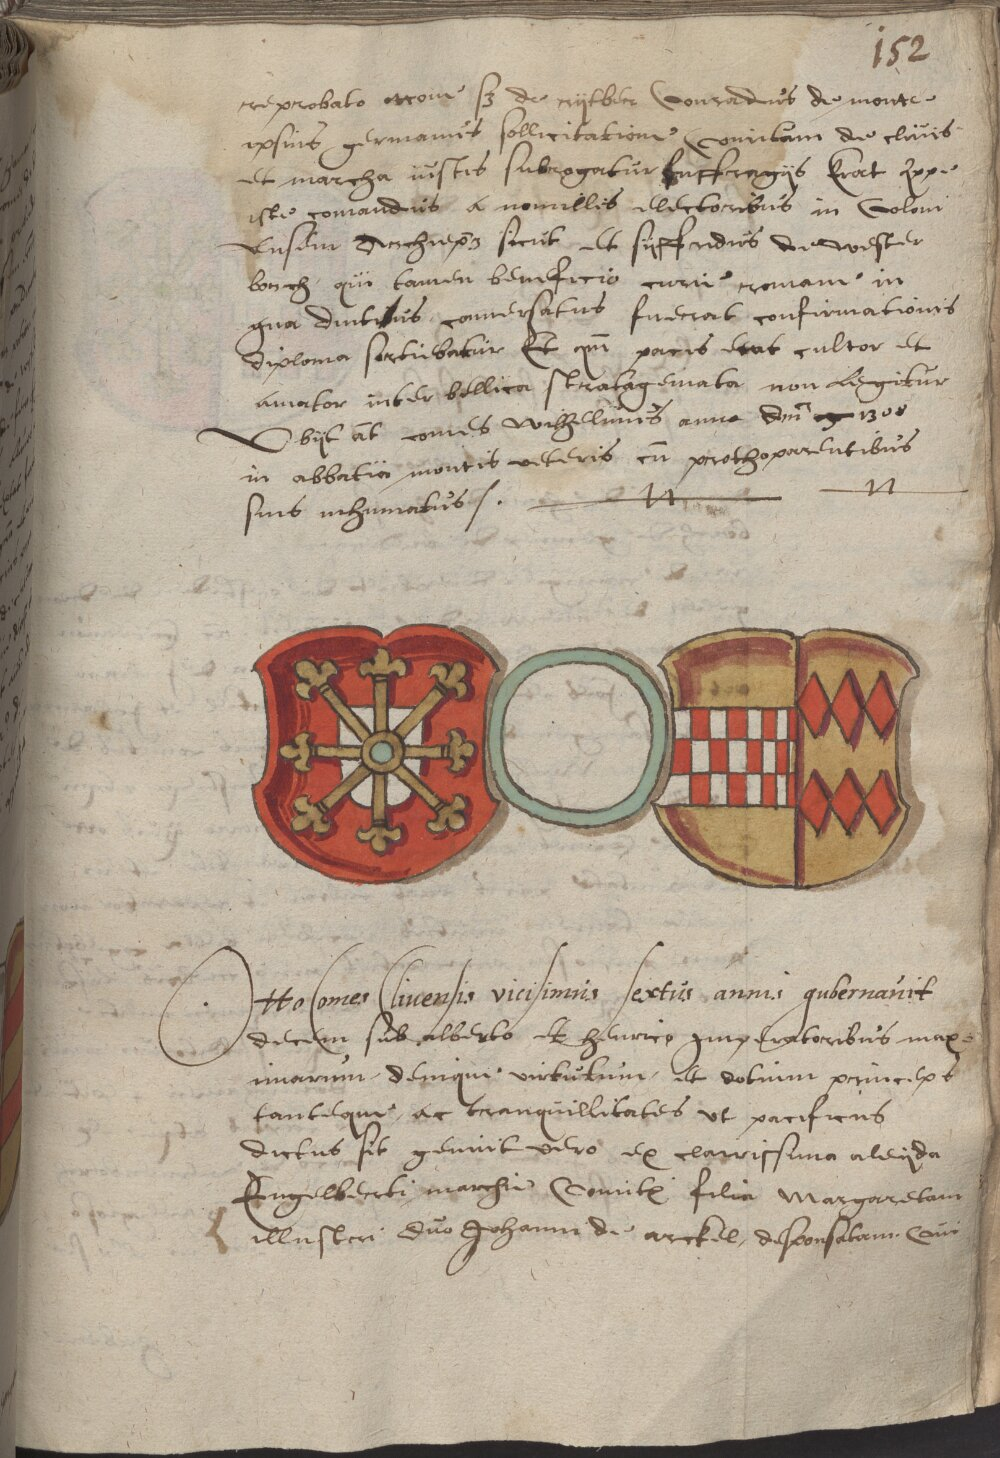 152
reprobato ottone sz de rijtber Conradus de monte
ipsius germanus sollicitatione Comitum de cliuis
et marcha iustis subrogatur suffragijs Erat
iste conrandus a nonnullis electoribus in Coloni
ensem Archiepm sicut et sijffridus de wester
borch qui tamen beneficio curie romane in
qua diutius conuersatus fuerat confirmationis
diploma sortiebatur Et qm pacis erat cultor et
amator inter bellica stratagemata non legitur
Obijt at comes wilhelmus anno dni 1308
in abbatia montis veteris cu prothoparentibus
suis inhumatus
Otto Comes Cliuensis vicisimus sextus annis gubernauit
decem sub alberto et henrico Imperatoribus max
imarum denique virtutum et dotium princeps
tanteque ac tranquillitates vt pacificus
dictus sit genuit vero ex clarissima aleijda
Engelberti marchie Comitis filia Margaretam
illustri duo Johanni de arckel desponsatam Cui